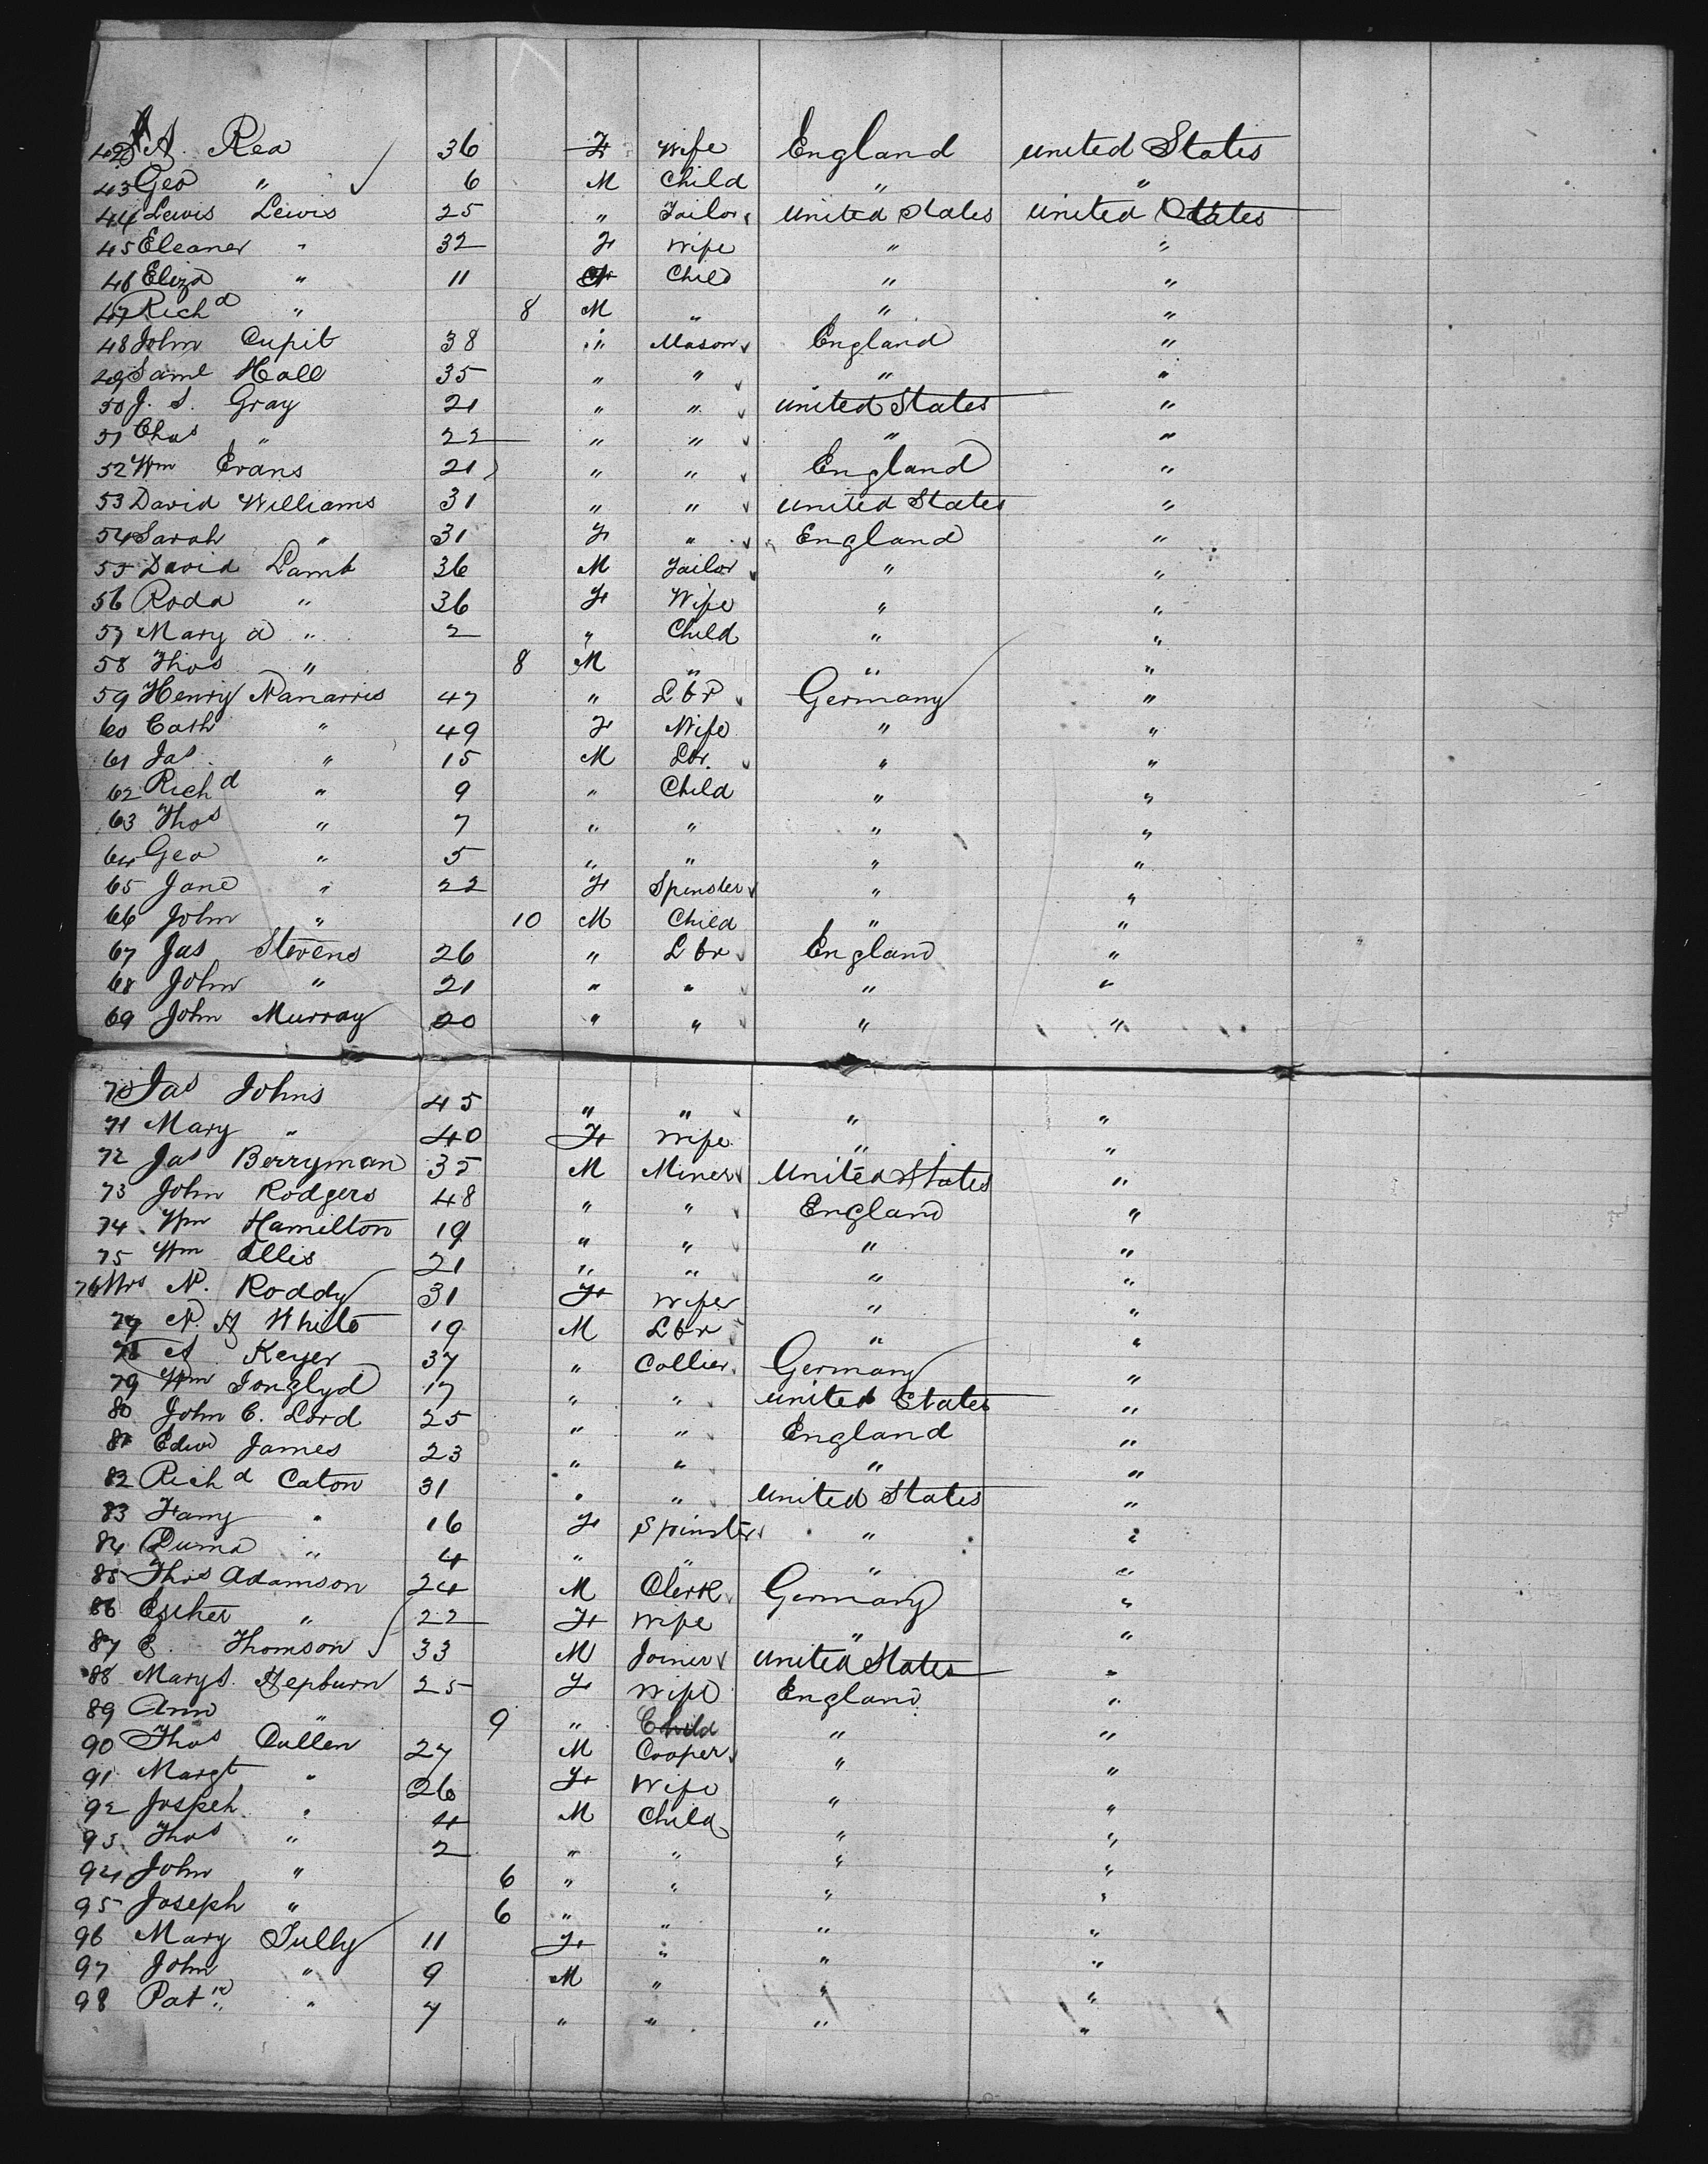 42 A. Rea 36 F Wife England United States
43 Geo " 6 M Child " "
44 Lewis Lewis 25 " Tailor United States United States
45 Eleaner " 32 F Wife " "
46 Eliza " 11 Child " "
47 Richd " 8 M " " "
48 John Cupit 38 " Mason England "
49 Saml Hall 35 " " " "
50 J. S. Gray 21 " " United States "
51 Chas " 22 " " " "
52 Wm Evans 21 " " England "
53 David Williams 31 " " United States "
54 Sarah " 31 F " England "
55 David Lamb 36 M Tailor " "
56 Roda " 36 F Wife " "
57 Mary A " 2 " Child " "
58 Thos " 8 M " " "
59 Henry Nanarris 47 " Lbr Germany "
60 Cath " 49 F Wife " "
61 Jas. " 15 M Lbr. " "
62 Richd " 9 " Child " "
63 Thos " 7 " " " "
64 Geo " 5 " " " "
65 Jane " 22 F Spinster " "
66 John " 10 M Child " "
67 Jas Stevens 26 " Lbr England "
68 John " 21 " " " "
69 John Murray 20 " " " "
70 Jas Johns 45 " " " "
71 Mary " 40 F Wife " "
72 Jas Berryman 35 M Miner United States "
73 John Rodgers 48 " " England "
74 Wm Hamilton 19 " " " "
75 Wm Ellis 21 " " " "
76 Mrs N. Roddy 31 F Wife " "
77 N. H White 19 M Lbr " "
78 A Keyer 37 " Collier Germany "
79 Wm 17 " " United States "
80 John C. Lord 25 " " England "
81 Edwd James 23 " " " "
82 Richd Caton 31 " " United States "
83 Fanny " 16 F Spinster " "
84 " 4 " " " "
85 Thos Adamson 24 M Clerk Germany "
86 Esther " 22 F Wife " "
87 E. Thomson 33 M Joiner United States "
88 Mary S. Hepburn 25 F Wife England "
89 Ann " 9 " Child " "
90 Thos Cullen 27 M Cooper " "
91 Margt " 26 F Wife " "
92 Jospeh " 4 M Child " "
93 Thos " 2 " " " "
94 John " 6 " " " "
95 Joseph " 6 " " " "
96 Mary Tully 11 F " " "
97 John " 9 M " " "
98 Patk " 7 " " " "